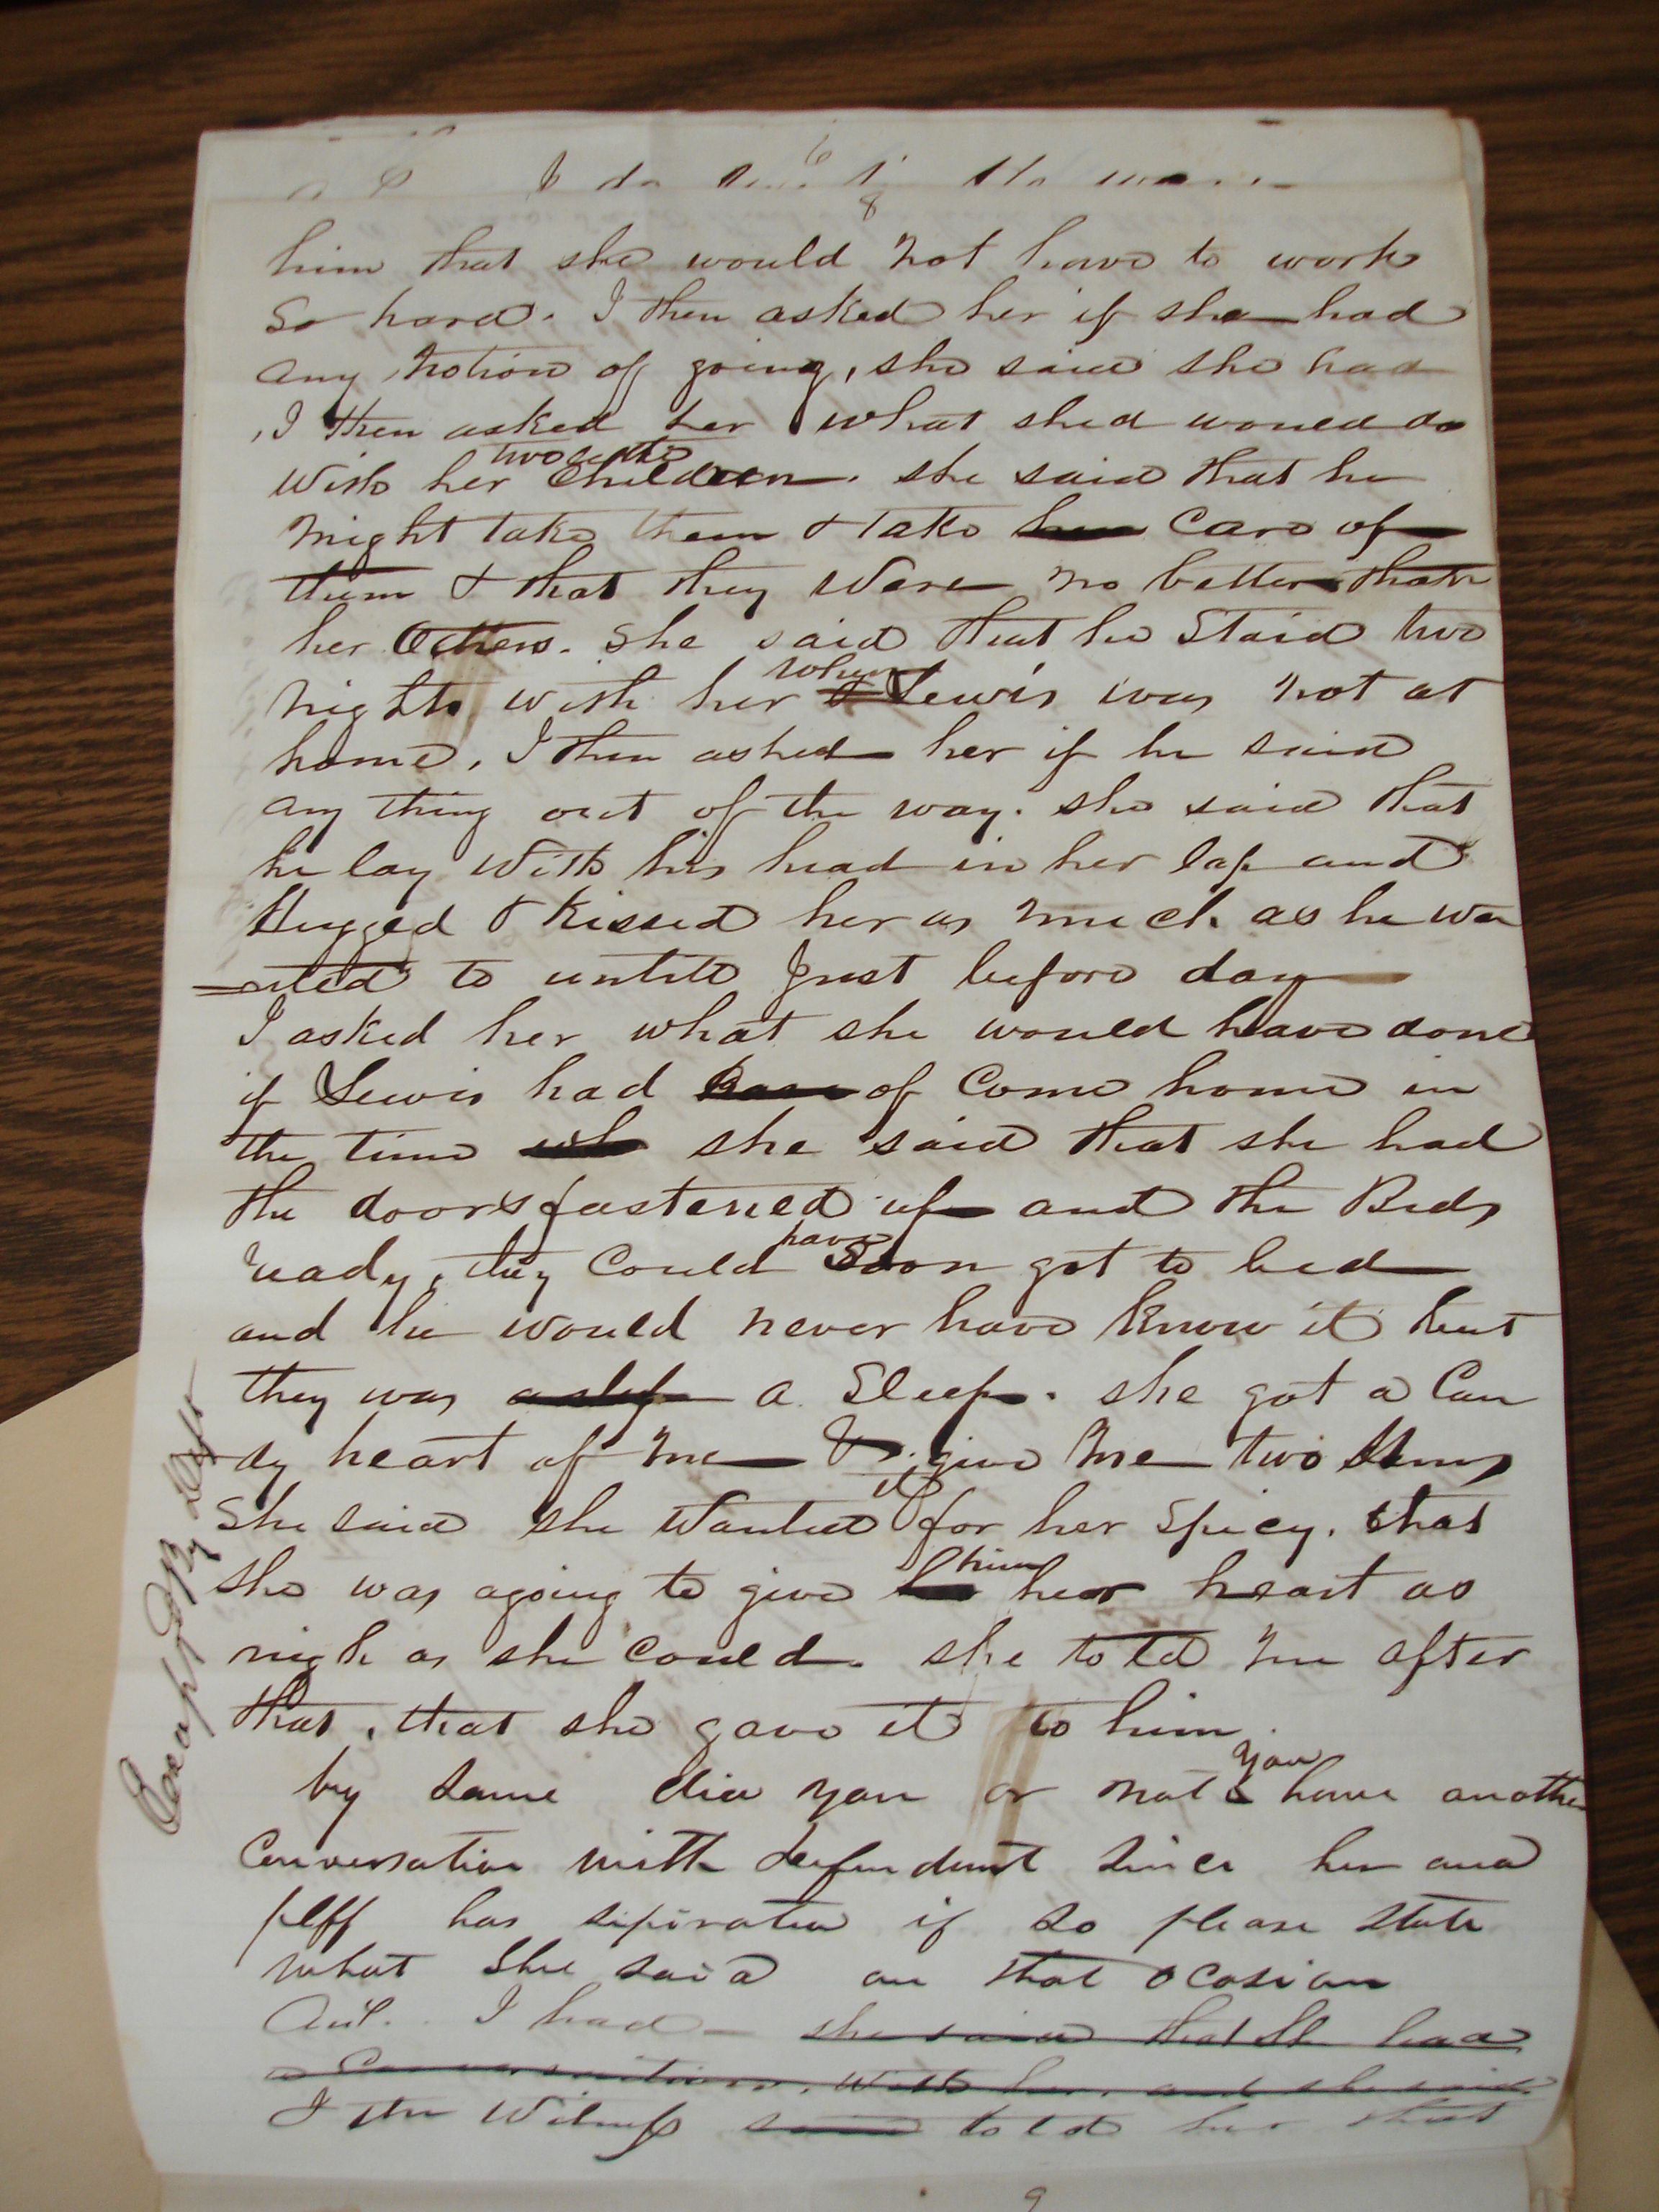 6
8
him that she would not have to work
So hard. I then asked her if she had
any notion of going, she said she had
, I then asked her what shed would do
two little
With her Children. she said that he
might take them & take her Care of
them & that they Were no better than
her Others. She said that he Staid two
when
nights with her & Lewis was not at
home, I then asked her if he said
any thing out of the way. she said that
he lay With his head in her lap and
Hugged & Kissed her as much as he wa
=nted to untill Just before day
I asked her what she would have done
if Lewis had have of Come home in
the time wh she said that she had
the doors fastened up and the Beds
have
ready, they Could Soon got to bed
and he would never have know it but
they was aslep a Sleep. she got a Can
dy heart of me & give me two
it
She said she Wanted for her Spicy, that
him
she was agoing to give her heart as
nigh as she Could. she told me after
that, that she gave it to him.
you
by same did you or not have another
Conversation with defendant since her and
plff has siperated if so please state
what She said on that ocasion
Ans. I had she said that She had
a Conversation, With her, and she said
I the Witness said told her that
Excepd By Deft
9